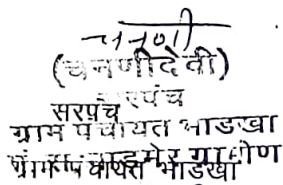 चनणी
(चनणीदेवी)
सरपंच
सरपंच
ग्राम पंचायत भाडखा
पं. स. बाड़मेर ग्रामीण
ग्राम पंचायत भाडखा